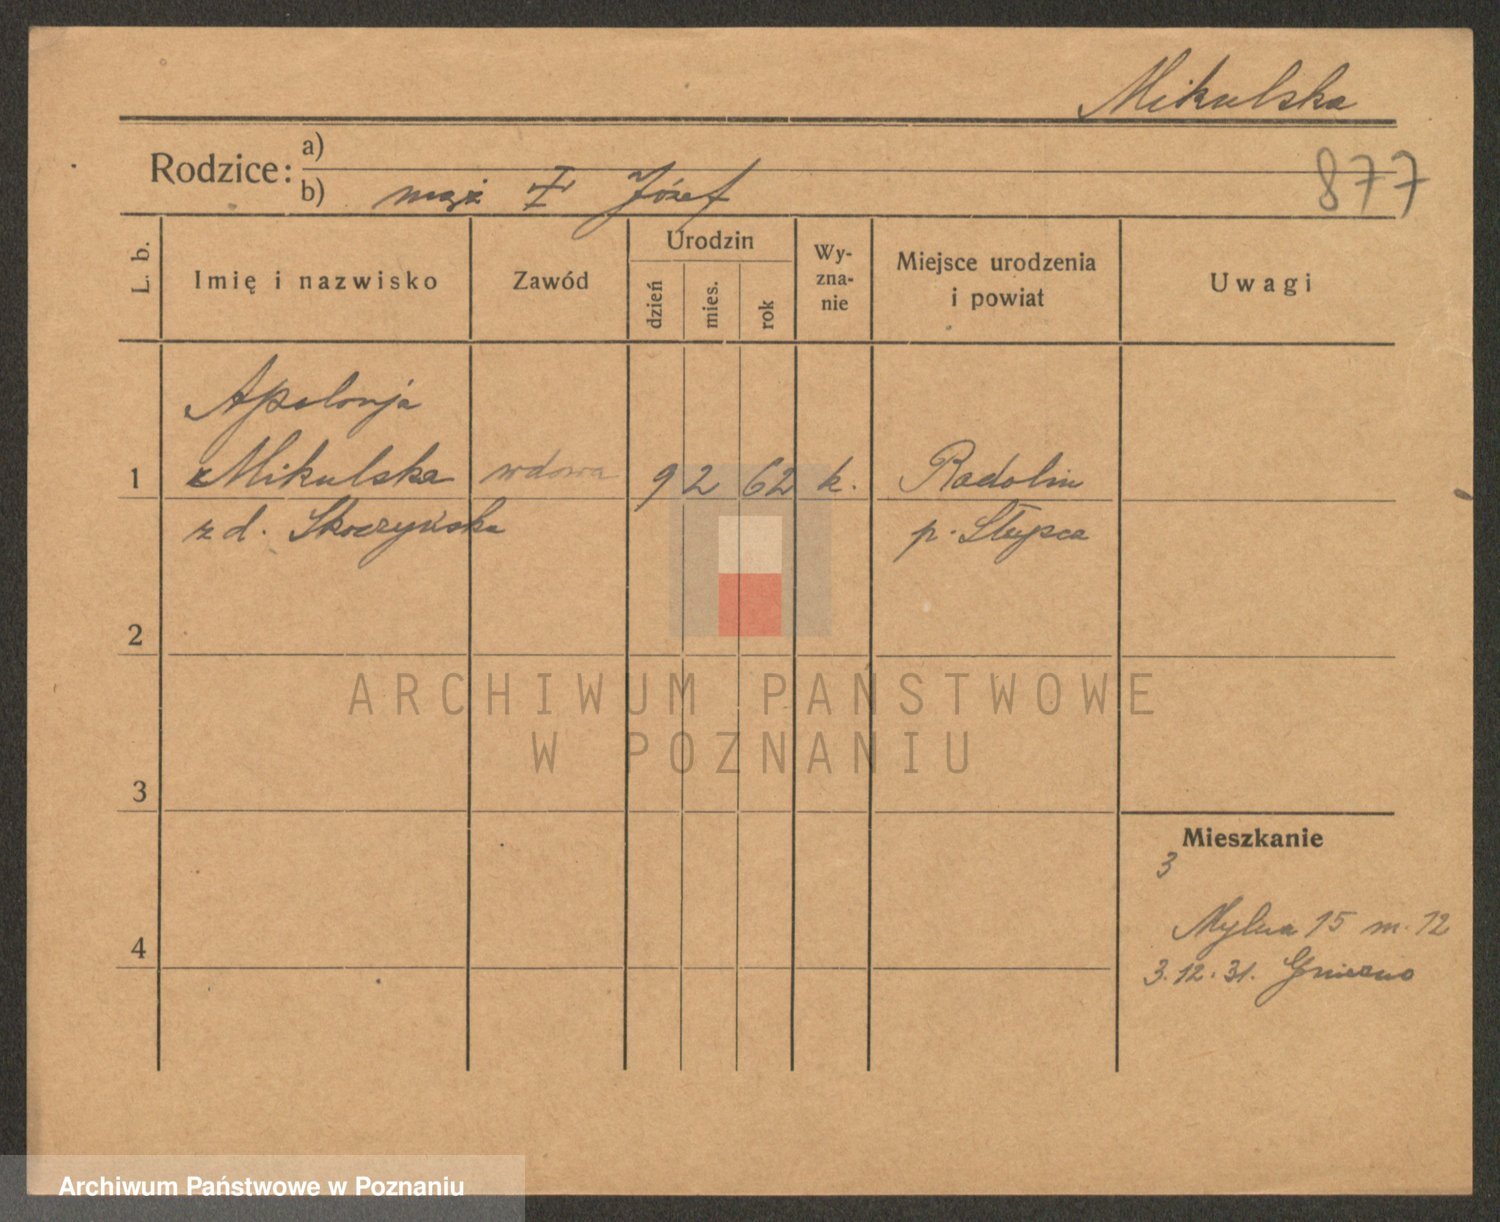 Mikulska
Rodzice: a)
877
b) mąż I Józef
L. b.
Imię i nazwisko
Zawód
Urodzin
dzień
mies.
rok
Wy-
zna-
nie
Miejsce urodzenia
i powiat
Uwagi
Apolonja
1 Mikulska wdowa 9 2 62 k. Radolin
z d. Skoczyńska p. Słupca
2
ARCHIWUM PAŃSTWOWE
W POZNANIU
3
Mieszkanie
3
Mylna 15 m. 12
4
3.12.31. Gniezno
Archiwum Państwowe w Poznaniu